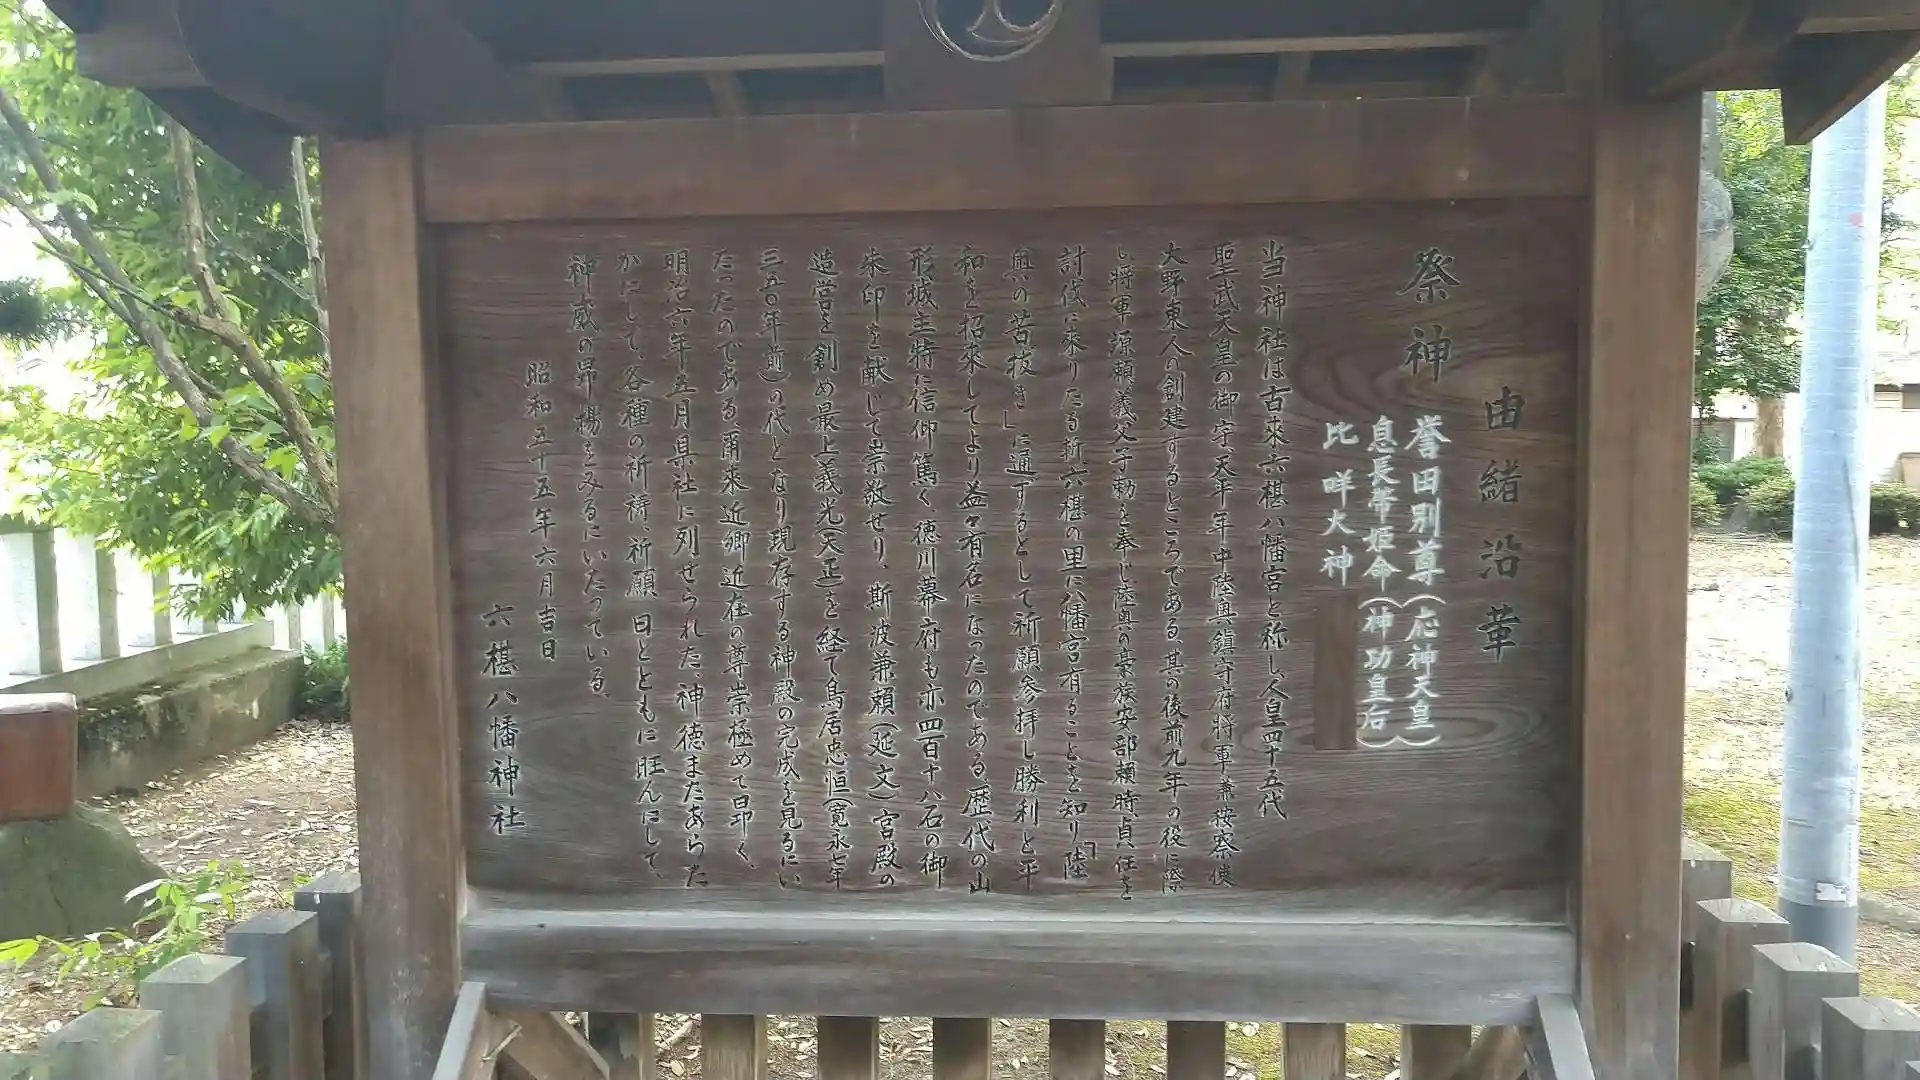 由緒沿革
祭神
誉田別尊(応神天皇)
息長帯姫命(神功皇后)
比咩大神
当神社は古来六椹八幡宮と称し、人皇四十五代
聖武天皇の御宇、天平年中陸奥鎮守府将軍兼按察使
大野東人の創建するところである、其の後前九年の役に際
し将軍源頼義父子勅を奉じ陸奥の豪族安部頼時、貞任を
討伐に来りたる折六椹の里に八幡宮有ることを知り「陸
奥の苦抜き」に通ずるとして祈願参拝し勝利と平
和を招来してより益々有名になったのである、歴代の山
形城主特に信仰篤く、徳川幕府も亦四百十八石の御
朱印を献じて崇敬せり、斯波兼頼(延文)宮殿の
造営を創め最上義光(天正)を経て鳥居忠恒(寛永七年
三五〇年前)の代となり現存する神殿の完成を見るにい
たったのである、爾来近郷近在の尊崇極めて日印く、
明治六年五月県社に列せられた、神徳まためらた
かにして、各種の祈祷、祈願 日とともに旺んにして、
神威の昴揚をみるにいたっている、
昭和五十五年六月吉日
六椹八幡神社